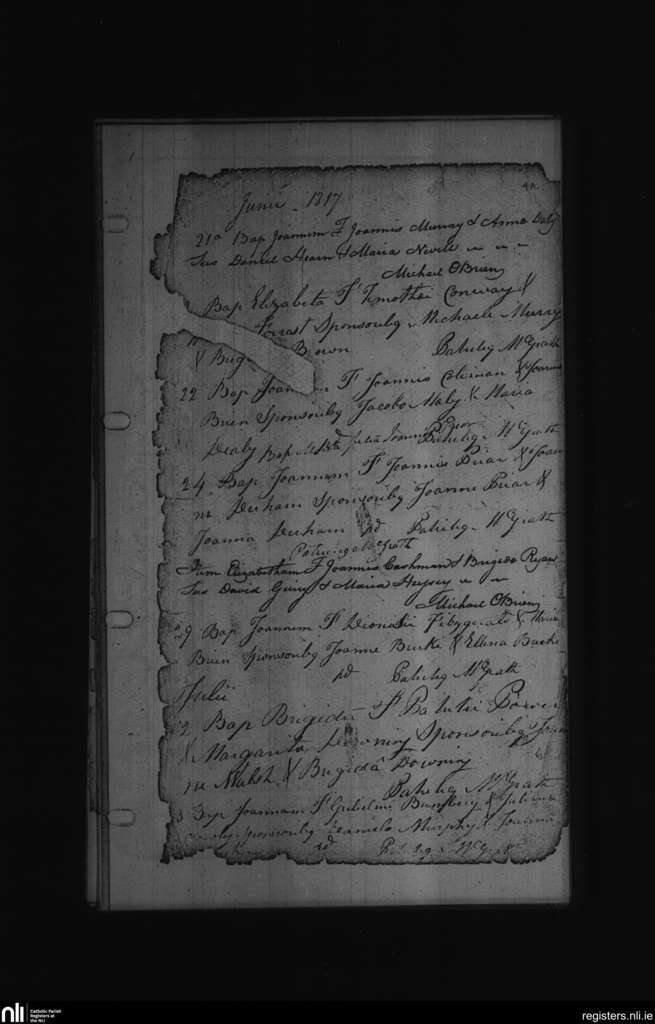 4A.
Junii 1817
21a Bap Joannem F Joannis Murray & Anna Daly
Sus Daniel Hearn & Maria Nevill
Michael OBrien
Bap Elizabeta F Timothei Conway &
Forrest Sponsoribq Michaele Murray
& Brig Bowen Patricius McGrath
22 Bap Joannem F Joannis Coleman & Joanna
Brien Sponsoribq Jacobo Maly & Maria
Dealy Bap
pd Patriciq McGrath
24 Bap Joannem F Joannis Briar & Joan
na Dunham Sponsoribq Joanne Briar &
Joanna Dunham pd Patriciq McGrath
Patriciq McGrath
Item Elizabetham F Joannis Cashman & Brigida Ryan
Sus David Geiry & Maria Heysey
Michael OBrien
29 Bap Joannem F Dionisii Fibzgerald & Maria
Brien Sponsoribq Joanne Burke & Ellena Burke
pd Patriciq McGrath
Julii
2 Bap Brigida F Patricii Bowen
& Margarita Downing Sponsoribq Joan
ne Walsh & Brigida Downing
Patriciq McGrath
3 Bap Joannam F Gulielmi Bunbury & Juliana
Sponsoribq Daniele Murphy & Joanna
pd Patriciq McGrath
nli
Catholic Parish
Registers at
the NLI
registers.nli.ie